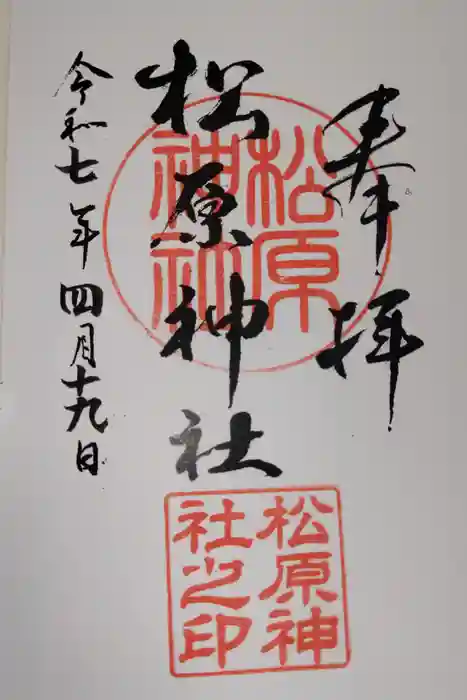 奉拝
松原神社
松原
神社
令和七年四月十九日
松原神
社之印